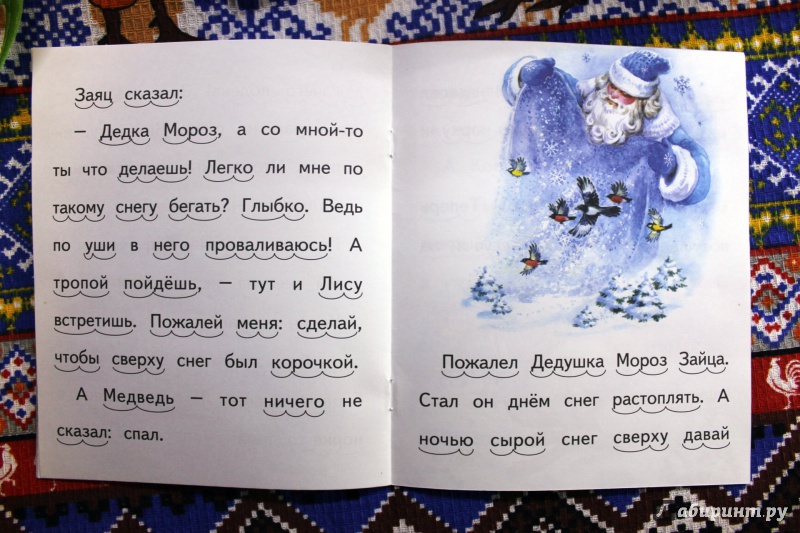 Заяц сказал:
— Дедка Мороз, а со мной-то
ты что делаешь! Легко ли мне по
такому снегу бегать? Глыбко. Ведь
по уши в него проваливаюсь! А
тропой пойдёшь, — тут и Лису
встретишь. Пожалей меня: сделай,
чтобы сверху снег был корочкой.
А Медведь — тот ничего не
сказал: спал.
Пожалел Дедушка Мороз Зайца.
Стал он днём снег растоплять. А
ночью сырой снег сверху давай
абиринт.ру